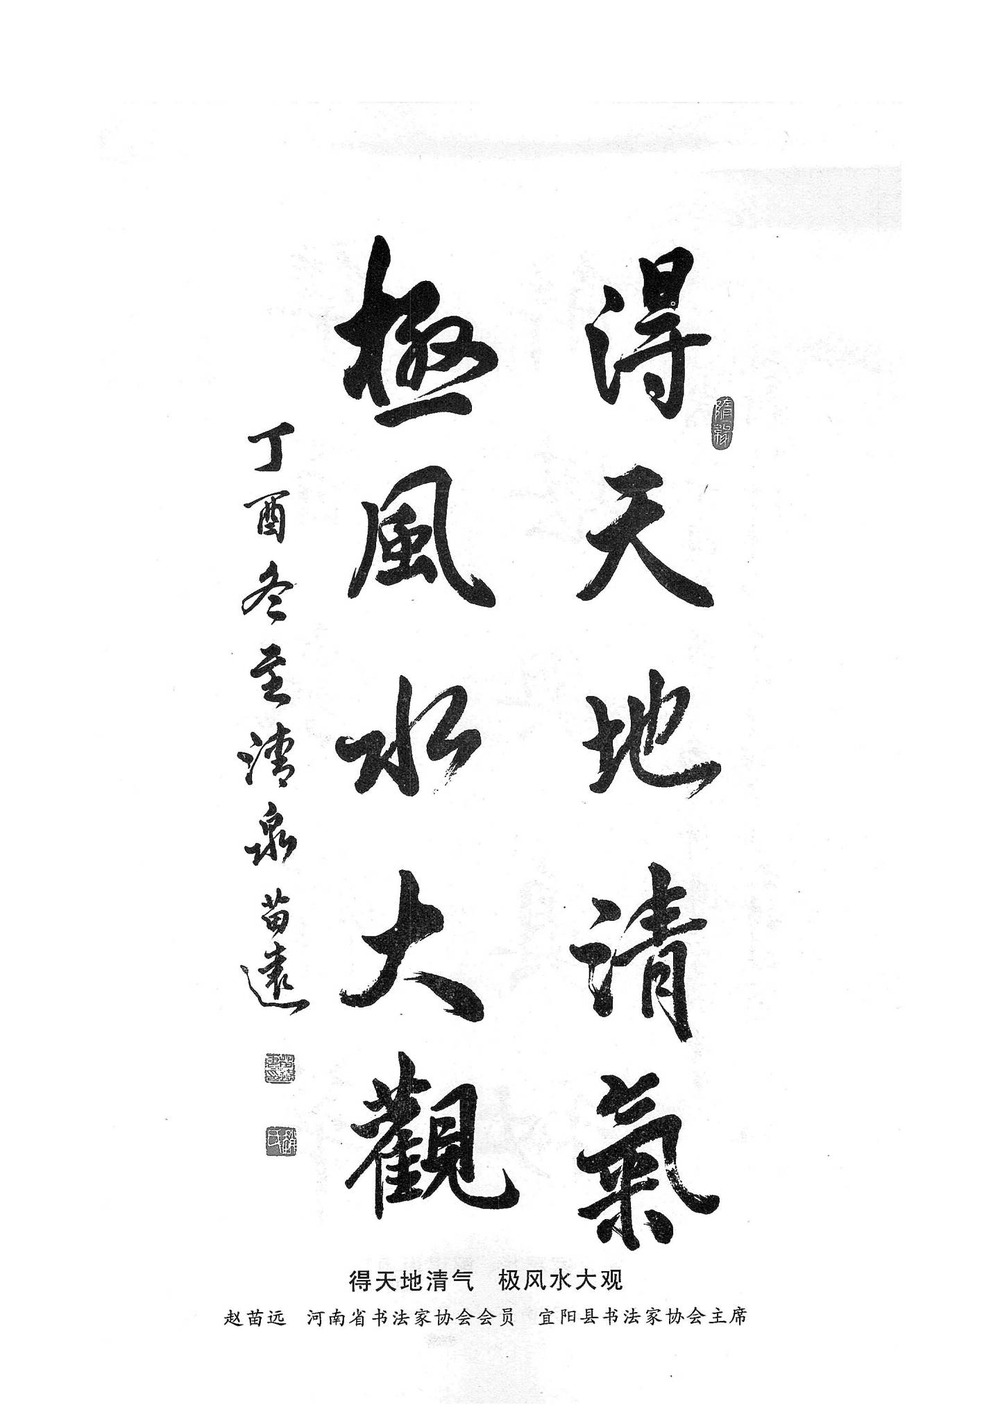 得天地清氣
極風水大觀
丁酉冬至清泉苗遠
得天地清气 极风水大观
赵苗远 河南省书法家协会会员 宜阳县书法家协会主席